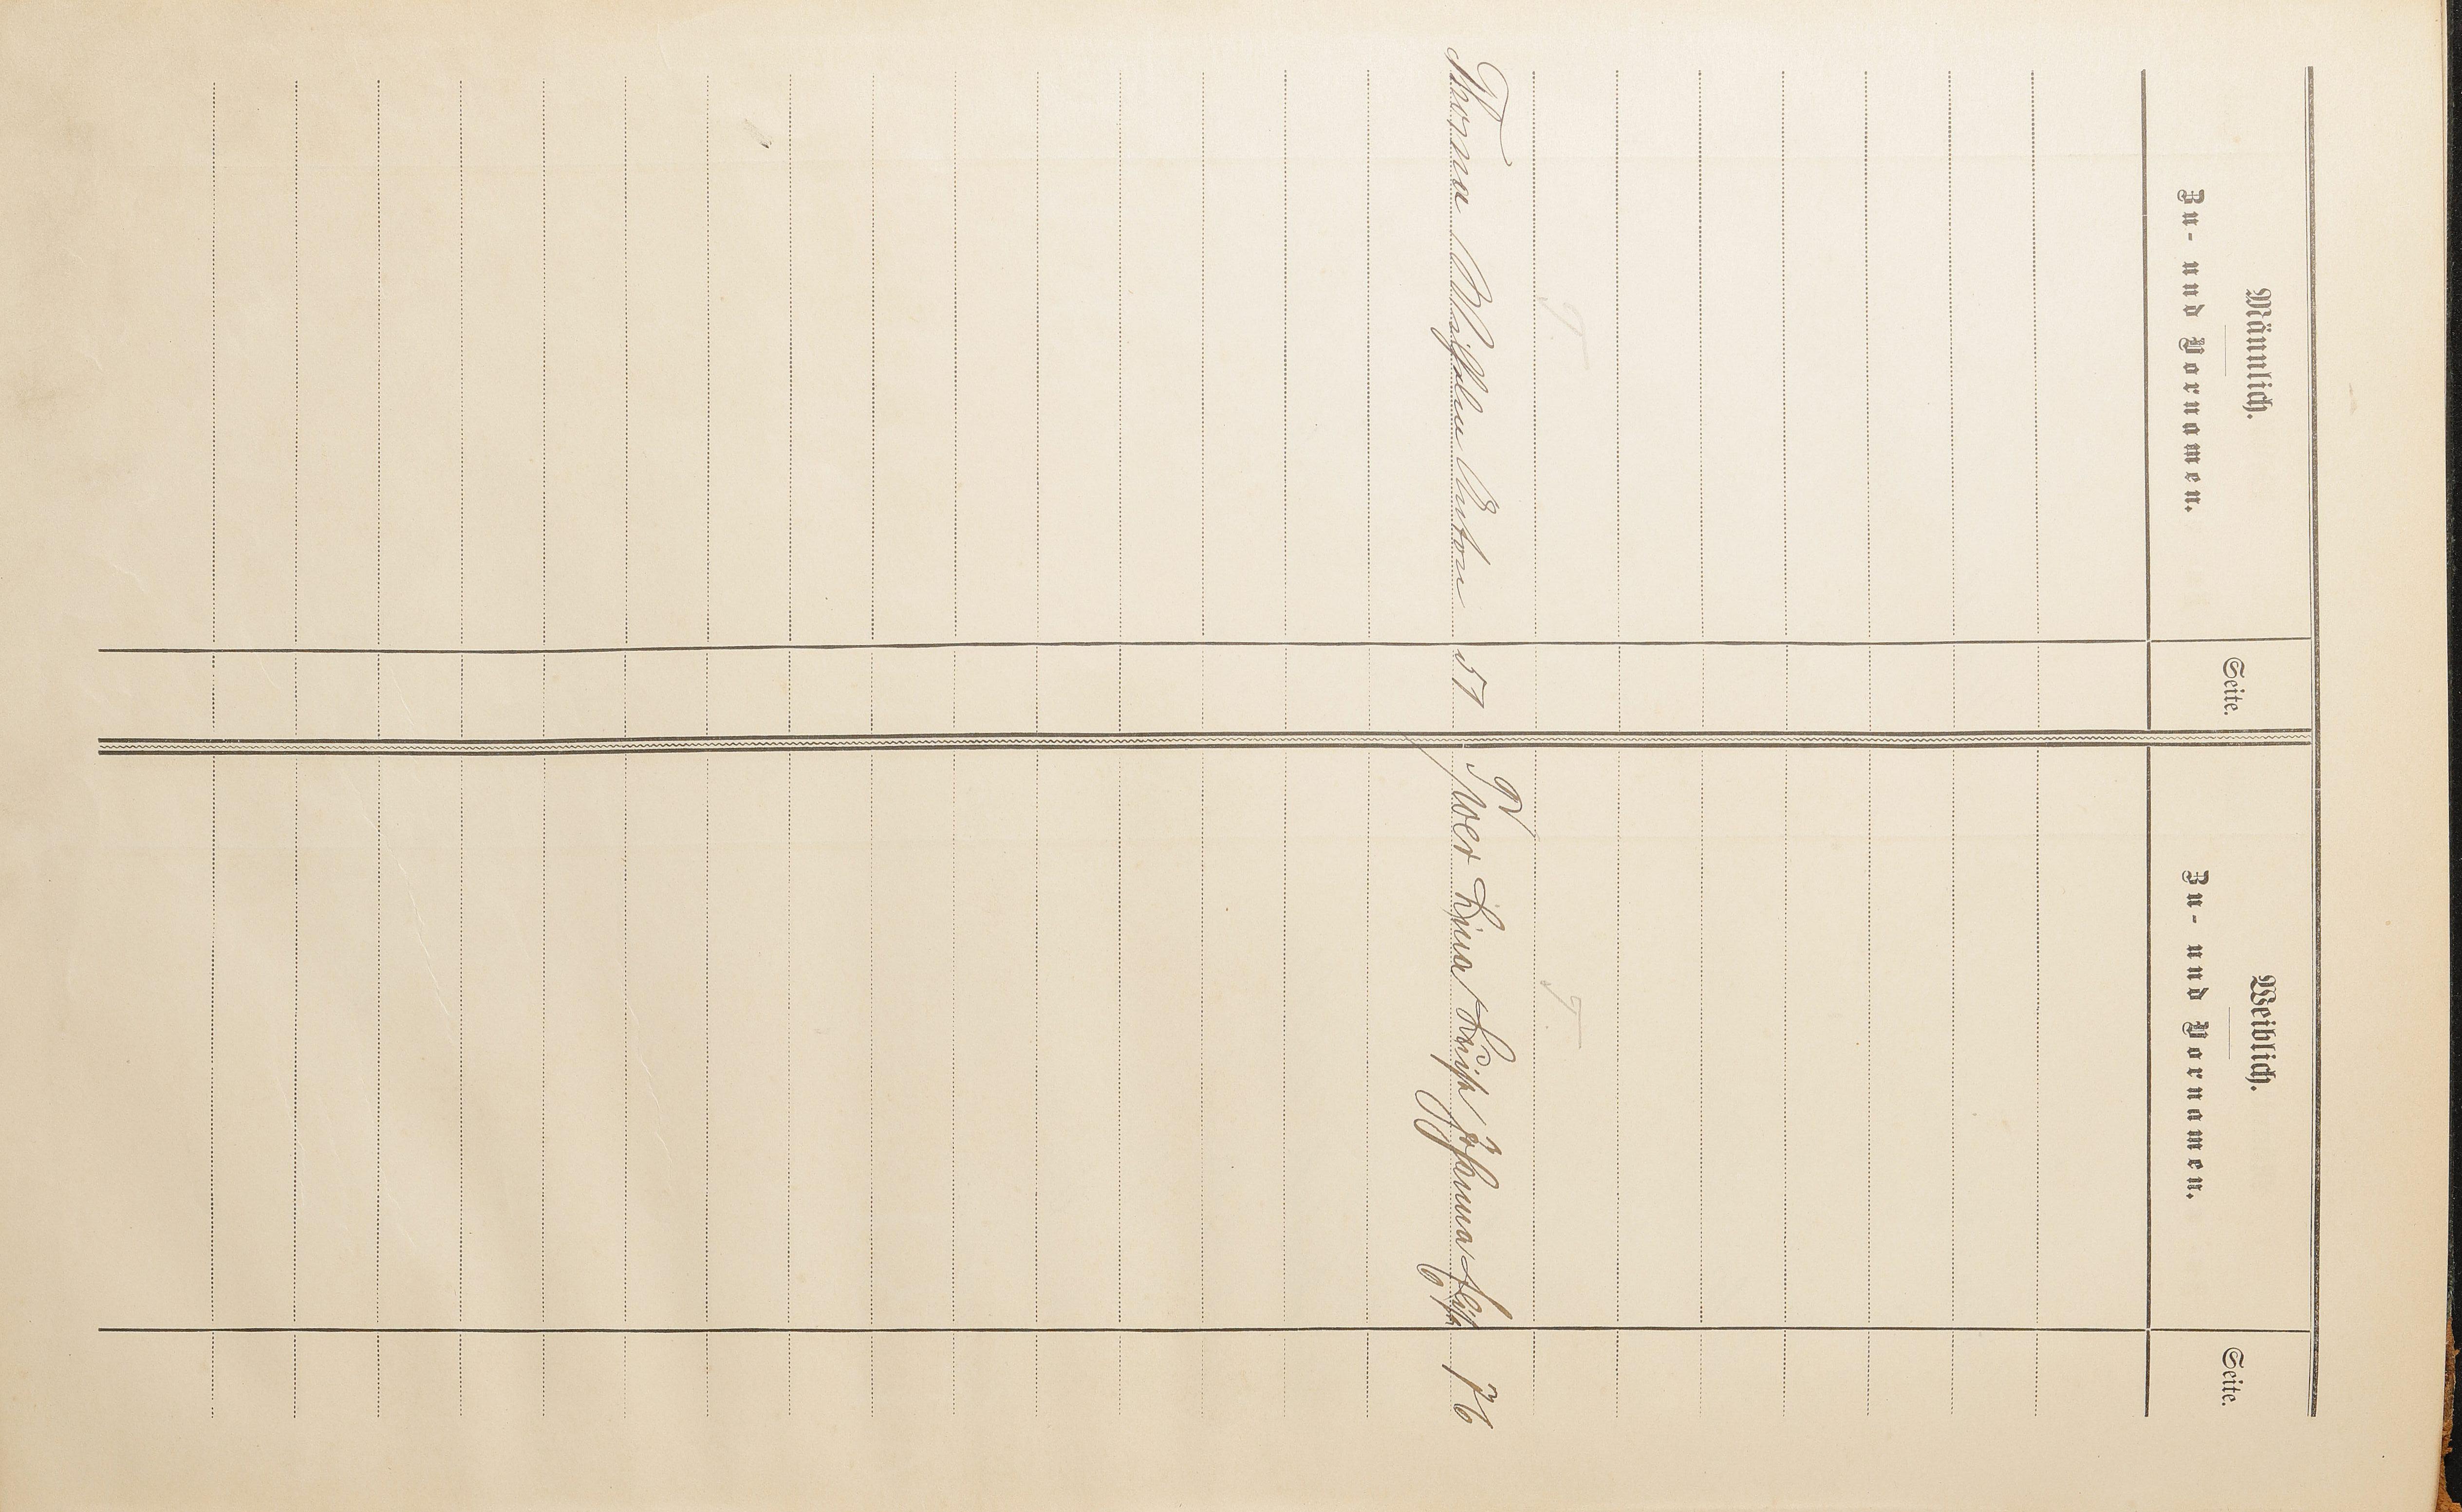 Männlich.
Zu- und Vornamen.
Seite.
Weiblich.
Zu- und Vornamen.
Seite.
T.
T.
Thoma Anton 57
Lina Luise Johanna 76